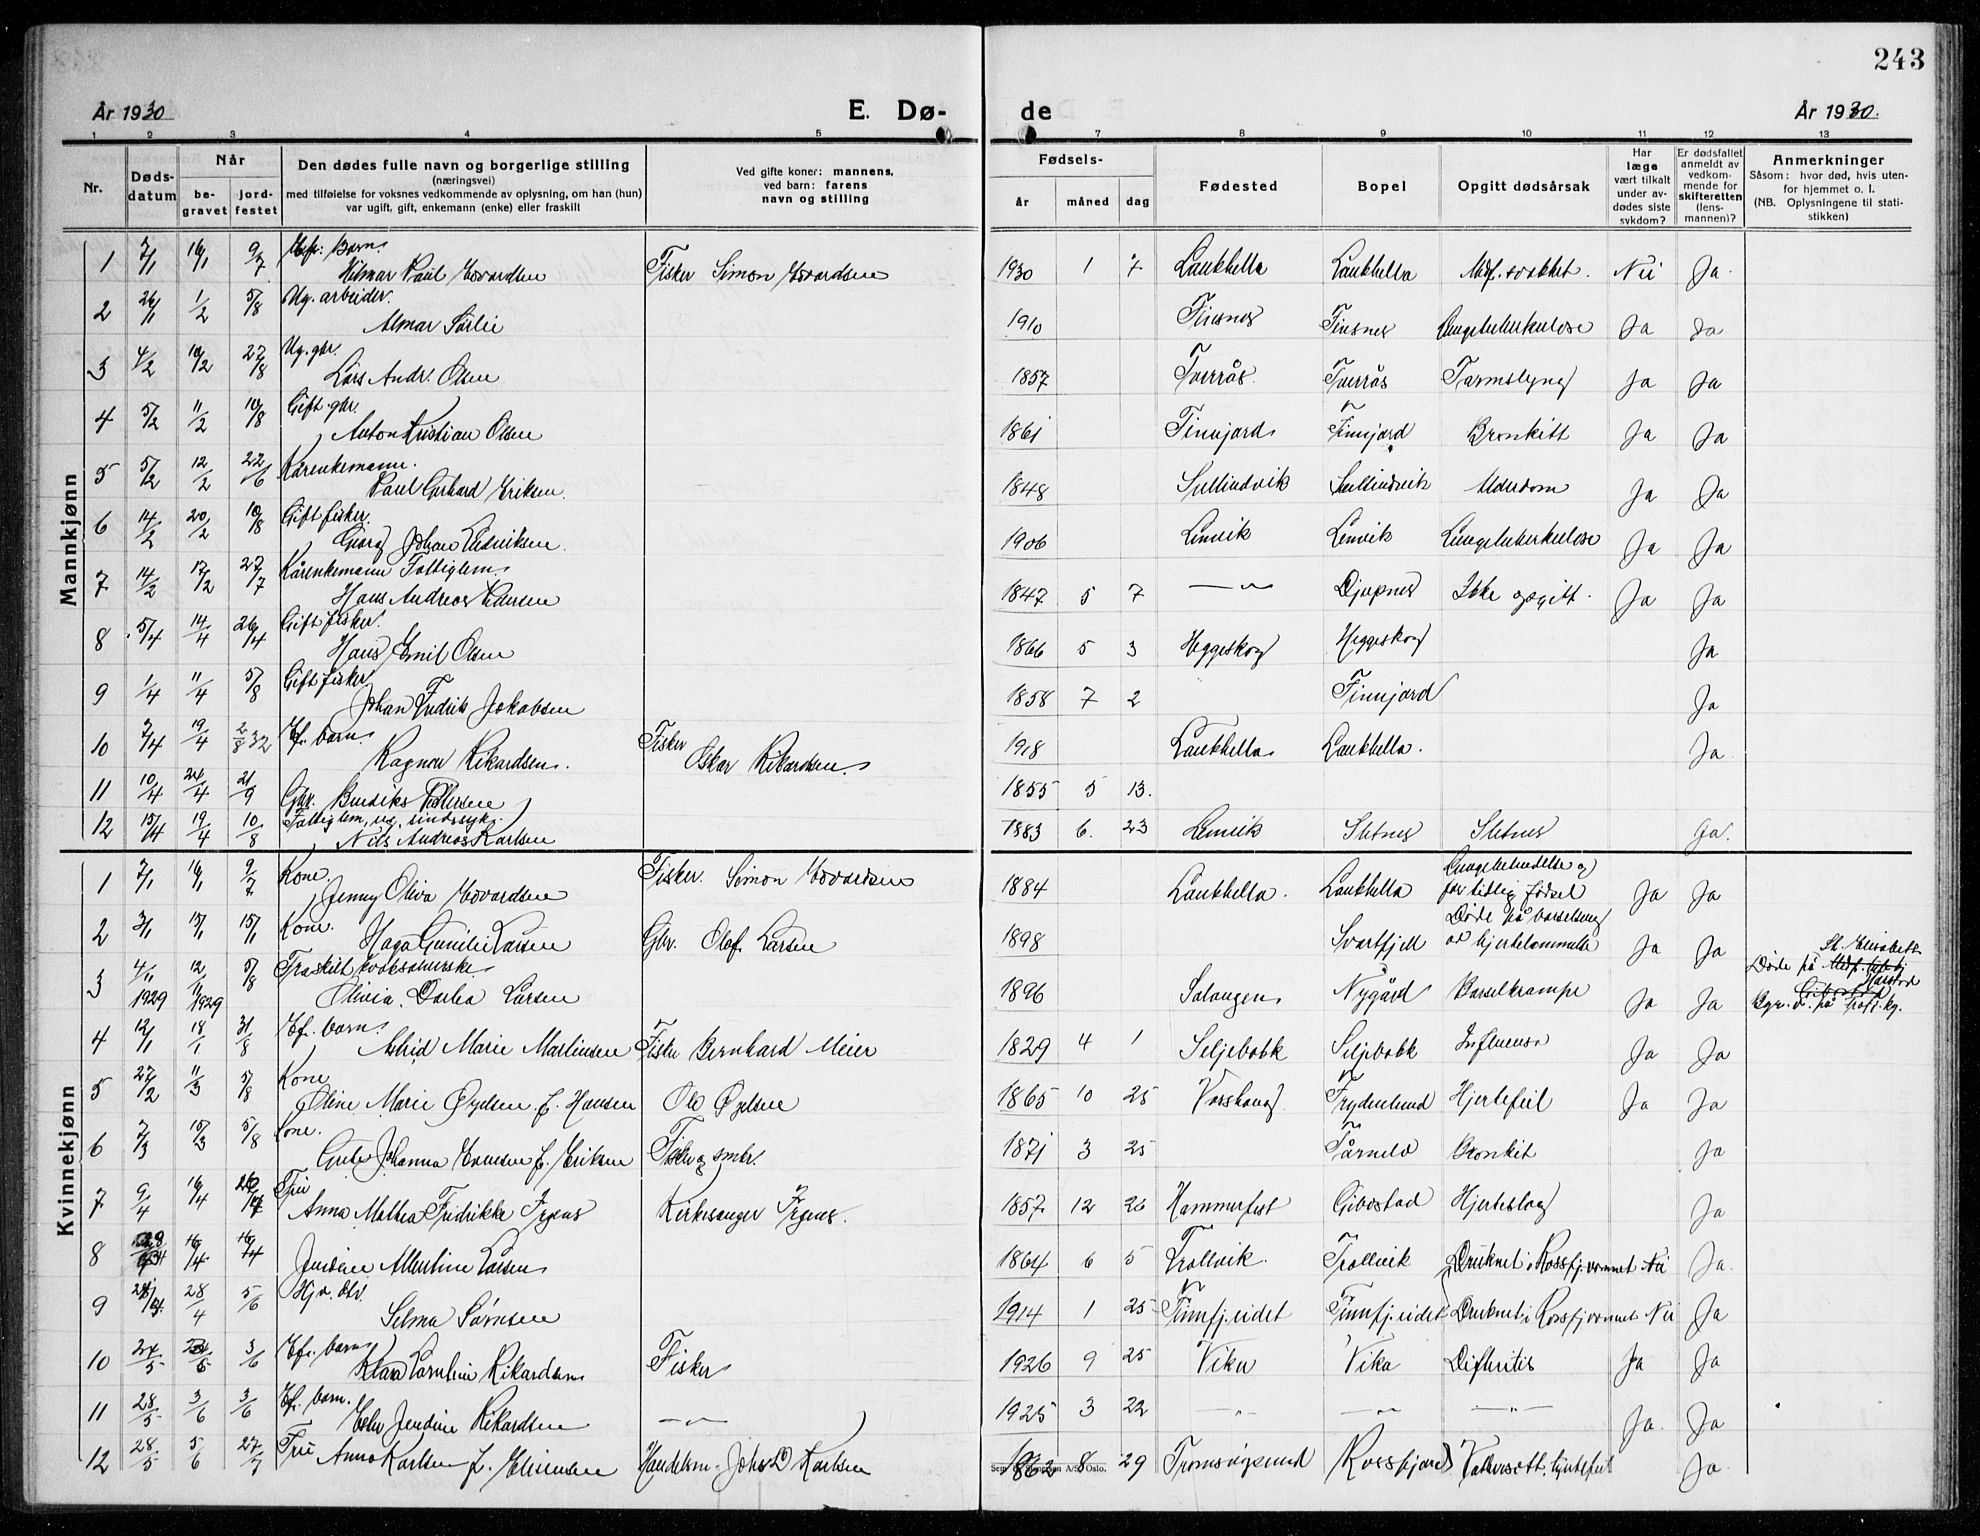 243
År 1930
E. Dø-
de
År 1930.
1 2 3 4 5 7 8 9 10 11 12 13
Nr.
Døds-
datum
Når
be-
gravet
jord-
festet
Den dødes fulle navn og borgerlige stilling
(næringsvei)
med tilføielse for voksnes vedkommende av oplysning, om han (hun)
var ugift, gift, enkemann (enke) eller fraskilt
Ved gifte koner: mannens,
ved barn: farens
navn og stilling
Fødsels-
år
måned
dag
Fødested
Bopel
Opgitt dødsårsak
Har
læge
vært tilkalt
under av-
dødes siste
sykdom?
Er dødsfallet
anmeldt av
vedkom-
mende for
skifteretten
(lens-
mannen)?
Anmerkninger
Såsom: hvor død, hvis uten-
for hjemmet o. l.
(NB. Oplysningene til stati-
stikken)
Mannkjønn
1 7/1 16/1 9/7 Barn Hilmar Paul Edvardsen Fisker Simon Edvardsen 1930 1 7 Laukhella Laukhella Medf. svakhet. Nei Ja
2 26/1 1/2 5/8 Ug. arbeider. Almar Sørlie 1910 Finsnes Finsnes Lungetuberkulose Ja Ja
3 4/2 10/2 27/8 Ug. gbr. Lars Andr. Olsen 1857 Tverrås Tverrås Tarmslyng Ja Ja
4 5/2 11/2 10/8 Gift gbr. Anton Kristian Olsen 1861 Finnjord Finnjord Bronkitt Ja Ja
5 5/2 12/2 22/6 Kårenkemann. Paul Gerhard Eriksen. 1848 Sultindvik Sultindvik Alderdom Ja Ja
6 14/2 20/2 10/8 Gift fisker. Georg Johan Hendriksen. 1906 Lenvik Lenvik Lungetuberkulose Ja Ja
7 14/2 17/2 27/7 Kårenkemann Fattiglem. Hans Andreas Pedersen 1847 5 7 —"— Djupnes Ikke opgitt. Ja Ja
8 5/4 14/4 26/4 Gift fisker. Hans Emil Olsen 1866 5 3 Heggeskog Heggeskog Ja
9 1/4 11/4 5/8 Gift fisker Johan Fredrik Jakobsen 1858 7 2 Finnjord Ja
10 7/4 19/4 2/8 32 Ef. barn. Ragnar Rikardsen. Fisker Oskar Rikardsen. 1918 Laukhella Laukhella. Ja
11 10/4 24/4 21/9 Gbr. Pedersen 1855 5 13.
12 15/4 19/4 10/8 Fattiglem, ug. sindssyk. Nils Andreas Karlsen 1883 6. 23 Lenvik Sletnes Sletnes Ja.
Kvinnekjønn
1 7/1 16/1 9/7 Kone. Jenny Oliva Edvardsen Fisker. Simon Edvardsen 1884 Laukhella. Laukhella Lungebetendelse og for tidlig fødsel Ja Ja
2 3/1 15/1 15/1 Kone. Larsen Gbr. Olof Larsen 1898 Svartfjell Døde på barselseng av hjertelammelse Ja Ja
3 4/11 1929 12/11 1929 5/8 Fraskilt Olivia Larsen 1896 Salangen Nygård Barselkrampe Ja Ja Døde på St. Elisabeth Harstad
4 12/1 18/1 31/8 Ef. barn. Astrid Marie Martinsen Fisker Bernhard Meier 1829 4 1 Seljebakk Seljebakk Influensa Ja Ja
5 27/2 11/3 5/8 Kone Oline Marie Øydsen f. Hansen Ole Øydsen 1865 10 25 Vorshaug Frydenlund Hjertefeil Ja Ja
6 7/3 15/3 5/8 Kone. Johanna f. Eriksen Fisker og smbr. 1871 3 25 Tårnelv Bronkit Ja
7 9/4 16/4 Fru Anna Mathea Fredrikke Irgens Kirkesanger Irgens. 1857 12 26 Hammerfest Gibostad Hjerteslag Ja
8 16/4 Albertine Larsen 1864 6 5 Trollvik. Trollvik Druknet i Rossfj.vannet Nei Ja.
9 28/4 5/6 Selma Sørnsen 1914 1 25 Finnfj.eidet Finnfj.eidet Druknet i Rossfjvannet Nei Ja
10 24/5 3/6 Ef. barn Klara Rikardsen Fisker 1926 9 25 Vika Vika Difteritis Ja Ja
11 28/5 3/6 3/6 Ef. barn. Jendine Rikardsen —"— 1925 3 22 —"— —"— —"— Ja. Ja
12 28/5 5/6 27/7 Fru Anna Karlsen f. Handelsm. Johs Karlsen 1862 8 29 Tromsøysund Rossfjord Ja.